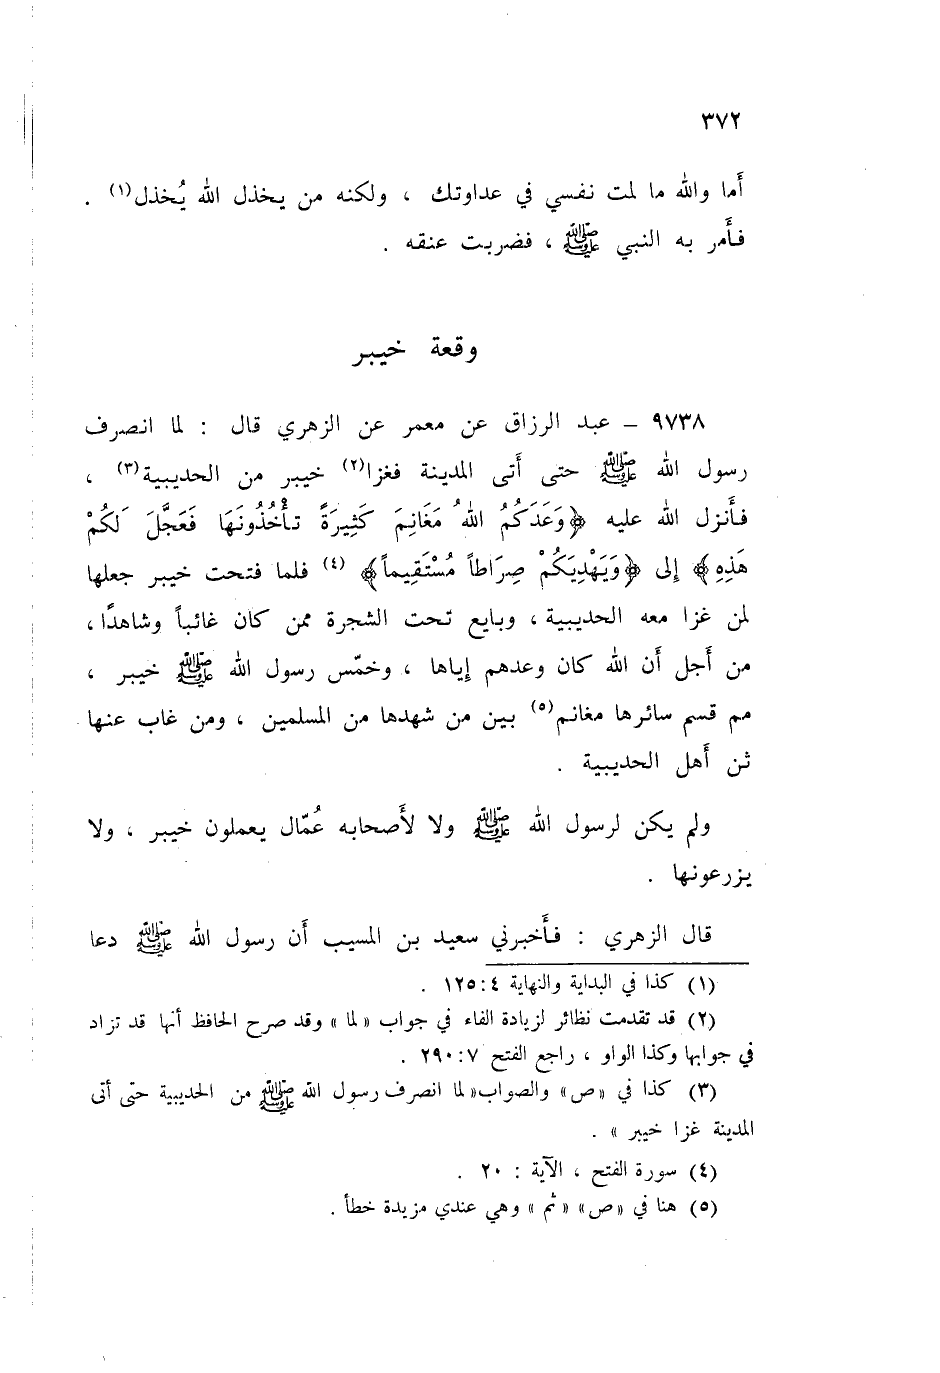 ٣٧٢
أَما والله ما لمت نفسي في عداوتك ، ولكنه من يخذل الله يُخذل(١) .
فأَمر به النبي ﷺ ، فضربت عنقه .
وقعة خيبر
٩٧٣٨ – عبد الرزاق عن معمر عن الزهري قال : لما انصرف
رسول الله ﷺ حتى أَتى المدينة فغزا(٢) خيبر من الحديبية(٣) ،
فأَنزل الله عليه ﴿وَعَدَكُمُ اللهُ مَغَانِمَ كَثِيرَةً تأْخُذُونَهَا فَعَجَّلَ لَكُمْ
هَذِهِ﴾ إلى ﴿وَيَهْدِيَكُمْ صِرَاطاً مُسْتَقِيماً﴾ (٤) فلما فتحت خيبر جعلها
لمن غزا معه الحديبية ، وبايع تحت الشجرة ممن كان غائباً وشاهدًا ،
من أَجل أَن الله كان وعدهم إياها ، وخمّس رسول الله ﷺ خيبر ،
مم قسم سائرها مغانم(٥) بين من شهدها من المسلمين ، ومن غاب عنها
ثن أَهل الحديبية .
ولم يكن لرسول الله ﷺ ولا لأَصحابه عُمّال يعملون خيبر ، ولا
يزرعونها .
قال الزهري : فأَخبرني سعيد بن المسيب أَن رسول الله ﷺ دعا
(١) كذا في البداية والنهاية ٤:‏١٢٥ .
(٢) قد تقدمت نظائر لزيادة الفاء في جواب « لما » وقد صرح الحافظ أنها قد تزاد
في جوابها وكذا الواو ، راجع الفتح ٧:‏٢٩٠ .
(٣) كذا في «ص» والصواب«لما انصرف رسول الله ﷺ من الحديبية حتى أتى
المدينة غزا خيبر » .
(٤) سورة الفتح ، الآية : ٢٠ .
(٥) هنا في «ص» « ثم » وهي عندي مزيدة خطأ .